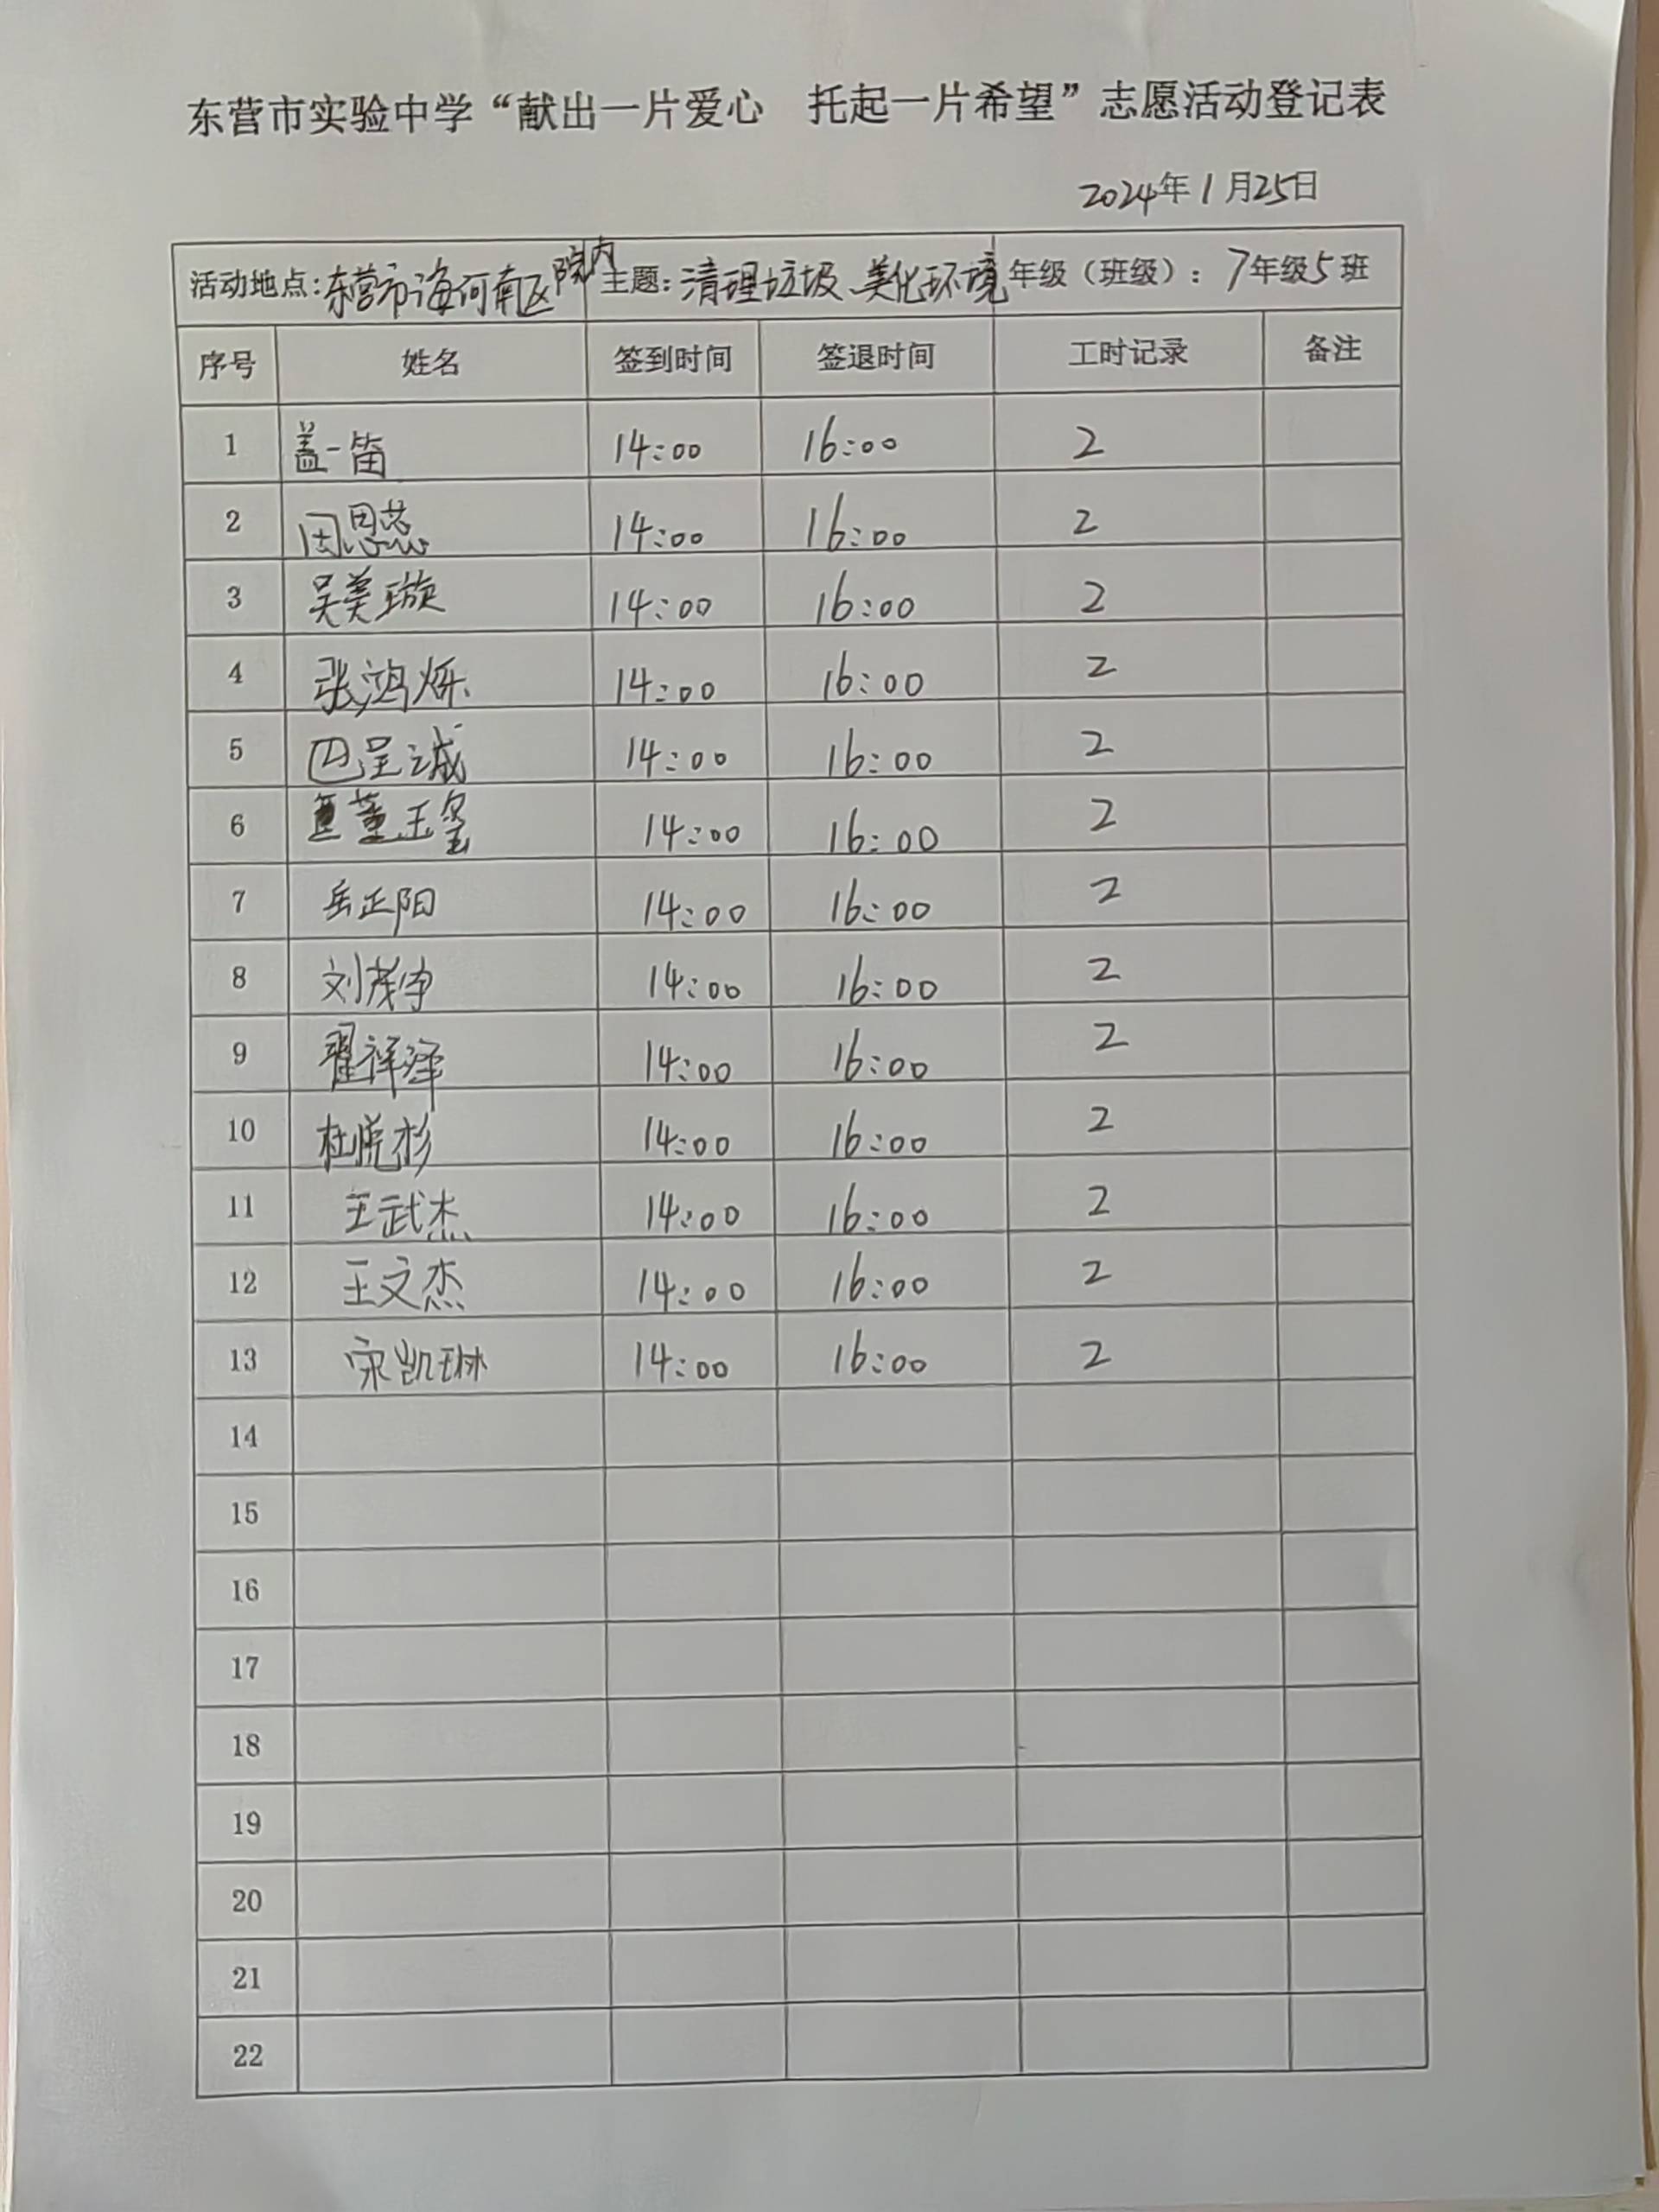 东营市实验中学“献出一片爱心 托起一片希望”志愿活动登记表
2024年1月25日
活动地点:东营市海河南区院内 主题:清理垃圾、美化环境 年级(班级):7年级5班
序号 姓名 签到时间 签退时间 工时记录 备注
1 盖一笛 14:00 16:00 2
2 田思蕊 14:00 16:00 2
3 吴美璇 14:00 16:00 2
4 张鸿烁 14:00 16:00 2
5 呈诚 14:00 16:00 2
6 董玉玺 14:00 16:00 2
7 岳正阳 14:00 16:00 2
8 刘茂净 14:00 16:00 2
9 翟祥泽 14:00 16:00 2
10 杜悦杉 14:00 16:00 2
11 王武杰 14:00 16:00 2
12 王文杰 14:00 16:00 2
13 宋凯琳 14:00 16:00 2
14
15
16
17
18
19
20
21
22